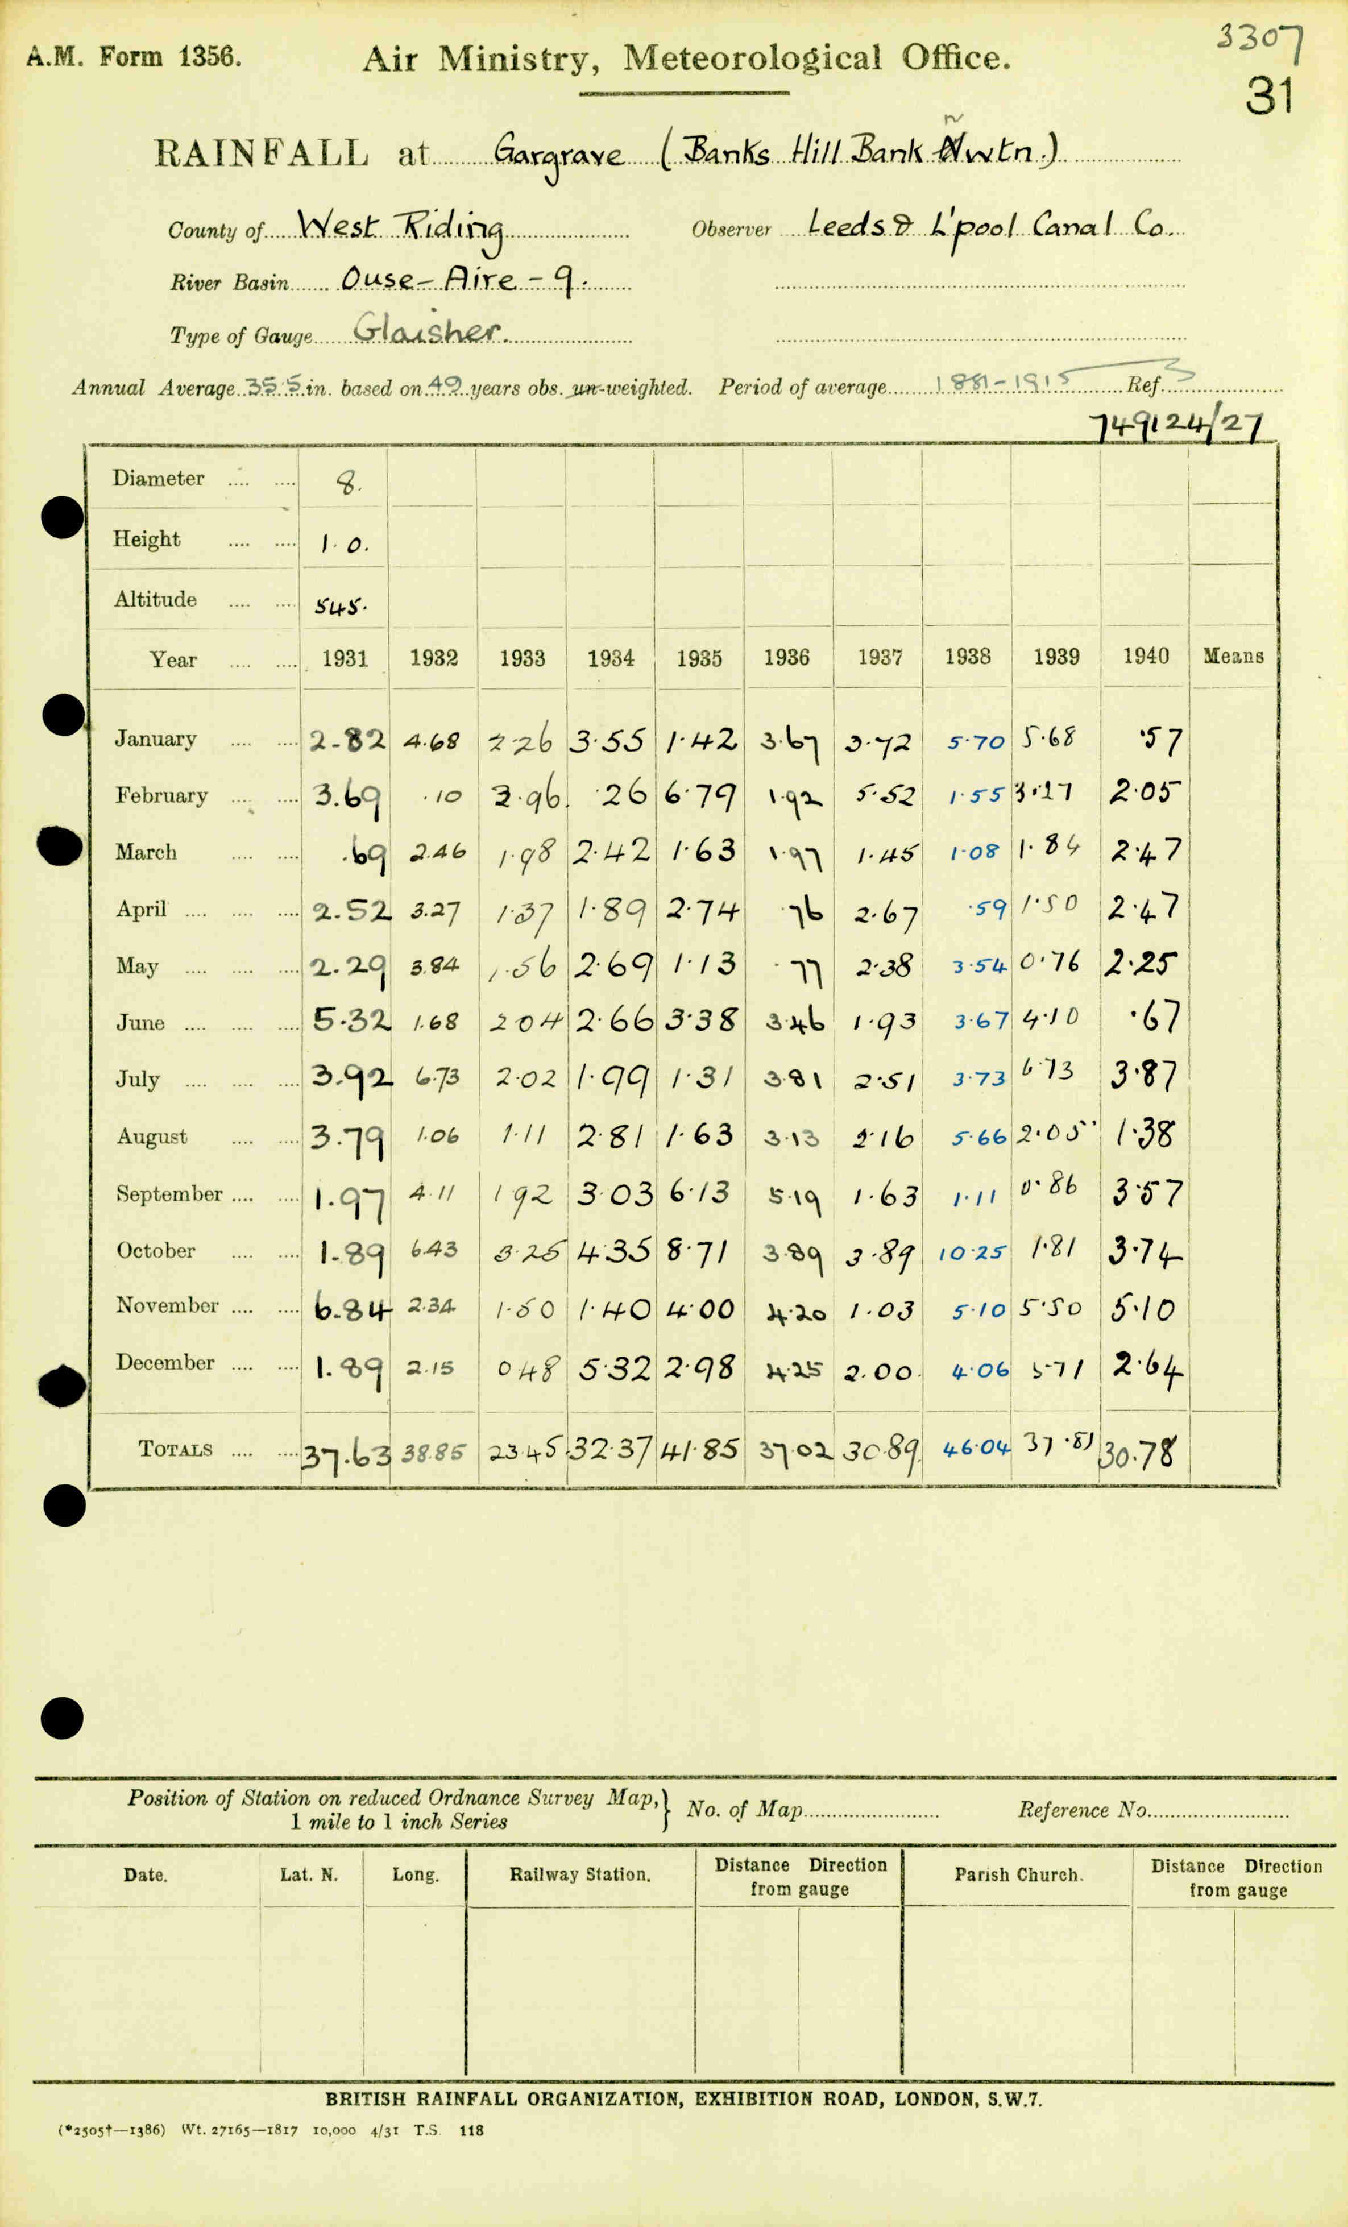 3307
31
A.M. Form 1356. Air Ministry, Meteorological Office.
RAINFALL at Gargrave (Banks Hill Bank Nwtn.)
County of West Riding Observer Leeds & L'pool Canal Co.
River Basin Ouse - Aire - 9.
Type of Gauge Glaisher.
Annual Average 35.5 in. based on 49 years obs. un-weighted. Period of average 1881-1915 Ref. 3
749124/27
Diameter .... .... 8.
Height .... .... 1.0.
Altitude .... .... 545.
Year .... .... 1931 1932 1933 1934 1935 1936 1937 1938 1939 1940 Means
January .... .... 2.82 4.68 2.26 3.55 1.42 3.67 3.72 5.70 5.68 .57
February .... .... 3.69 .10 3.96 .26 6.79 1.92 5.52 1.55 3.27 2.05
March .... .... .69 2.46 1.98 2.42 1.63 1.97 1.45 1.08 1.84 2.47
April .... .... .... 2.52 3.27 1.37 1.89 2.74 .76 2.67 .59 1.50 2.47
May .... .... .... 2.29 3.84 1.56 2.69 1.13 .77 2.38 3.54 0.76 2.25
June .... .... .... 5.32 1.68 2.04 2.66 3.38 3.46 1.93 3.67 4.10 .67
July .... .... .... 3.92 6.73 2.02 1.99 1.31 3.81 2.51 3.73 6.73 3.87
August .... .... 3.79 1.06 1.11 2.81 1.63 3.13 2.16 5.66 2.05 1.38
September .... .... 1.97 4.11 1.92 3.03 6.13 5.19 1.63 1.11 0.86 3.57
October .... .... 1.89 6.43 3.25 4.35 8.71 3.89 3.89 10.25 1.81 3.74
November .... .... 6.84 2.34 1.50 1.40 4.00 4.20 1.03 5.10 5.50 5.10
December .... .... 1.89 2.15 0.48 5.32 2.98 4.25 2.00 4.06 3.71 2.64
TOTALS .... .... 37.63 38.85 23.45 32.37 41.85 37.02 30.89 46.04 37.81 30.78
Position of Station on reduced Ordnance Survey Map, } No. of Map Reference No.
1 mile to 1 inch Series
Date. Lat. N. Long. Railway Station. Distance Direction from gauge Parish Church. Distance Direction from gauge
BRITISH RAINFALL ORGANIZATION, EXHIBITION ROAD, LONDON, S.W.7.
(*2505†—1386) Wt. 27165—1817 10,000 4/31 T.S. 118